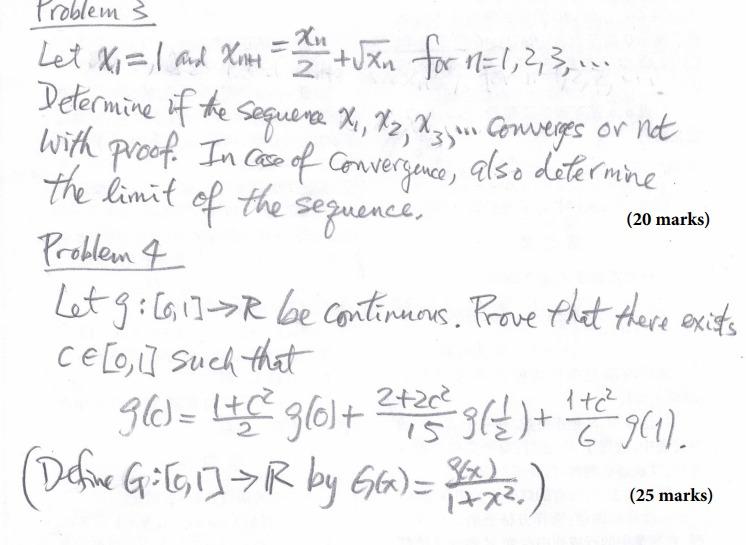 Problem 3
Let x₁=1 and xₙ₊₁ = xₙ/2 + √xₙ for n=1,2,3,...
Determine if the sequence x₁, x₂, x₃,... converges or not
with proof. In case of convergence, also determine
the limit of the sequence.
(20 marks)
Problem 4
Let g:[0,1]→ℝ be continuous. Prove that there exists
c∈[0,1] such that
g(c) = (1+c²)/2 g(0) + (2+2c²)/15 g(1/2) + (1+c²)/6 g(1).
(Define G:[0,1]→ℝ by G(x) = g(x)/(1+x²).)
(25 marks)